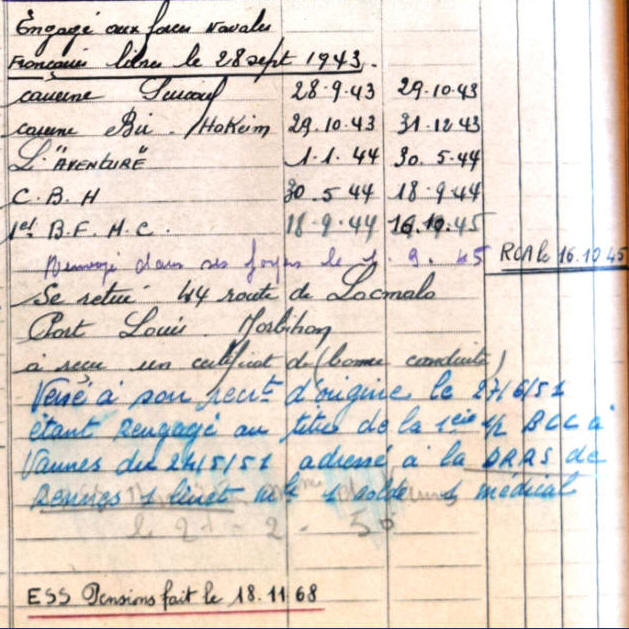 Engagé aux forces Navales
Françaises libres le 28 sept 1943.
caserne Surcouf 28-9-43 29-10-43
caserne Bir-Hakeim 29.10.43 31-12-43
L'"AVENTURE" 1-1-44 30.5-44
C.B.H 30.5 44 18-9-44
1er B.F.H.C. 18-9-44 16.10.45
Renvoyé dans ses foyers le 1.9.45 RCA le 16.10 45
Se retire 44 route de Locmalo
Port Louis Morbihan
a reçu un certificat de (bonne conduite)
Versé à son recrt d'origine le 27/6/51
étant rengagé au titre de la 1ère 1/2 BCC à
Vannes du 24/5/51 adressé à la DRRS de
Rennes 1 livret mle 1 solde 1 médical
le 21-2-50
ESS Pensions fait le 18.11 68